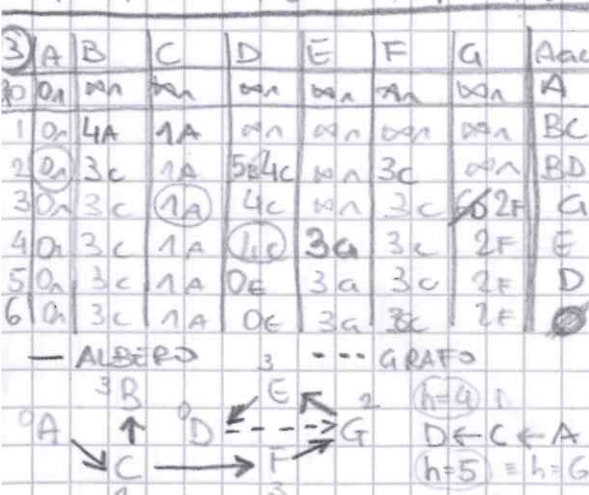 3 A B C D E F G Aac
0 0n ∞n ∞n ∞n ∞n ∞n ∞n A
1 0n 4A 1A ∞n ∞n ∞n ∞n BC
2 0n 3c 1A 5B4c ∞n 3c ∞n BD
3 0n 3c 1A 4c ∞n 3c 2F G
4 0n 3c 1A 4c 3G 3c 2F E
5 0n 3c 1A 0E 3G 3c 2F D
6 0n 3c 1A 0E 3G 3c 2F
— ALBERO --- GRAFO
3 B 3 E h=4
0 A 0 D 2 G D ← C ← A
C F h=5 ≡ h=6
1 3